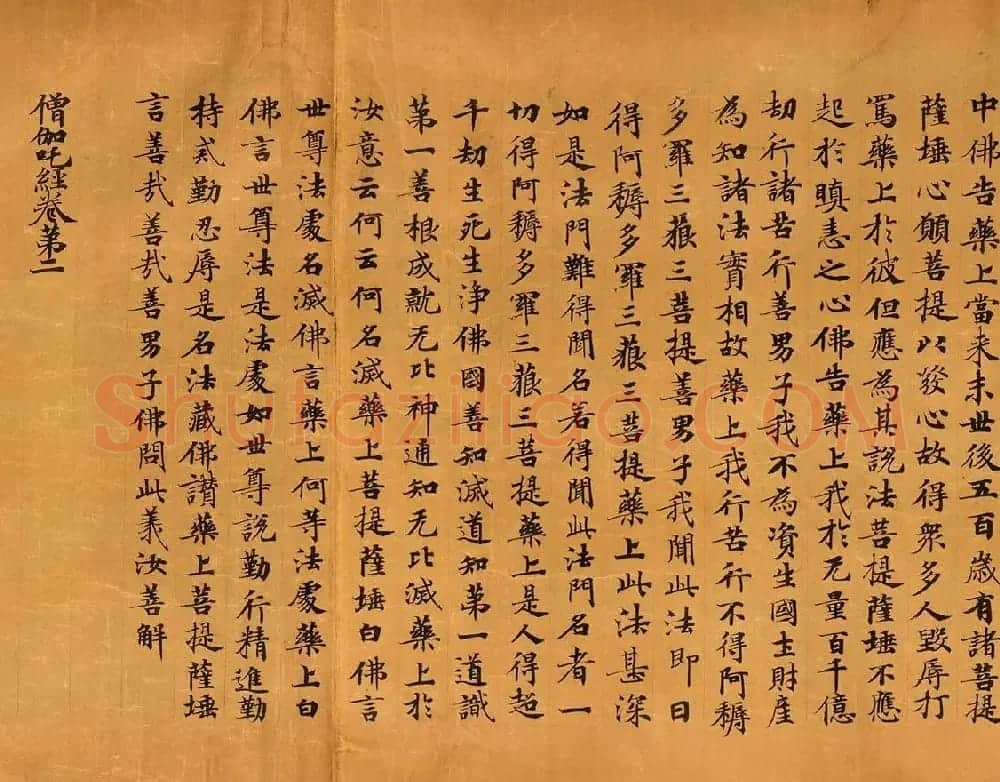 中佛告藥上當来末世後五百歳有諸菩提
薩埵心願菩提以發心故得衆多人毀辱打
罵藥上於彼但應為其說法菩提薩埵不應
起於瞋恚之心佛告藥上我於无量百千億
劫行諸苦行善男子我不為資生國土財産
為知諸法實相故藥上我行苦行不得阿耨
多羅三藐三菩提善男子我聞此法即日
得阿耨多羅三藐三菩提藥上此法甚深
如是法門難得聞名若得聞此法門名者一
切得阿耨多羅三藐三菩提藥上是人得超
千劫生死生淨佛國善知滅道知第一道識
第一善根成就无比神通知无比滅藥上於
汝意云何云何名滅藥上菩提薩埵白佛言
世尊法處名滅佛言藥上何等法處藥上白
佛言世尊法是法處如世尊說勤行精進勤
持貳勤忍辱是名法藏佛讃藥上菩提薩埵
言善㢤善㢤善男子佛問此義汝善解
僧伽吒經卷第二
Shufaziliao.COM